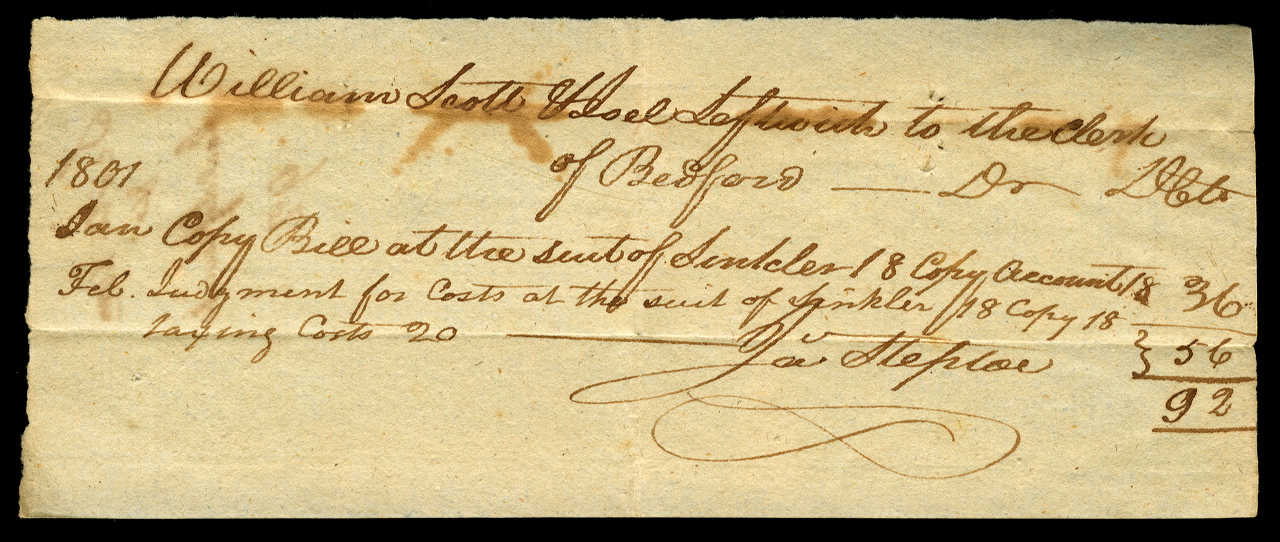 William Scott & Joel Leftwich to the Clerk
of Bedford — Dr D Cts
1801
Jan Copy Bill at the suit of Sinkler 18 Copy Account 18 36
Feb. Judgment for Costs at the suit of Sinkler 18 Copy 18
taxing Costs 20 — } 56
Ja Steptoe
92